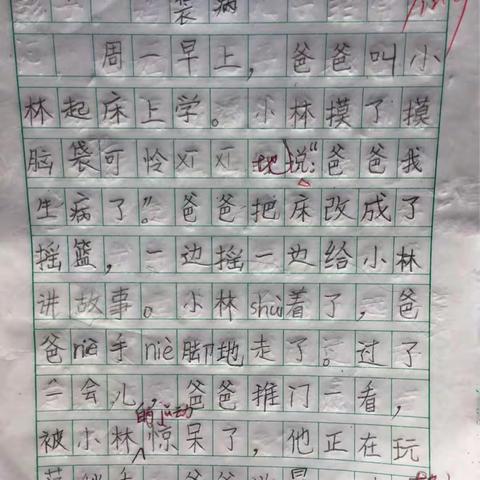 装病
周一早上，爸爸叫小
林起床上学。小林摸了摸
脑袋可怜XIXI地说:“爸爸我
生病了”。爸爸把床改成了
摇篮，一边摇一边给小林
讲故事。小林shuì着了，爸
爸niè手niè脚地走了。过了
一会儿，爸爸推门一看，
被小林的jǔ动惊呆了，他正在玩